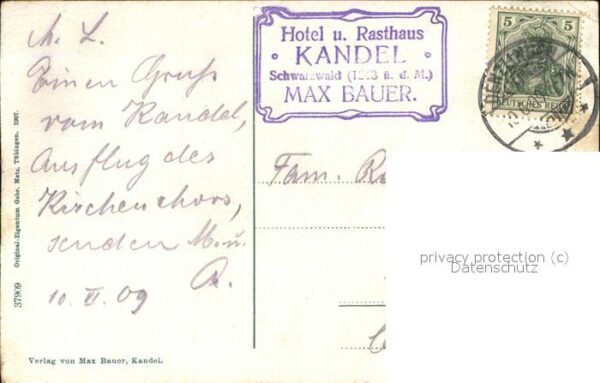 M. L.
Einen Gruß
vom Kandel,
Ausflug des
Kirchenchors,
senden M. u.
R.
10. VI. 09
Hotel u. Rasthaus
KANDEL
Schwarzwald (1243 ü. d. M.)
MAX BAUER.
5 5
DEUTSCHES REICH
Fam.
privacy protection (c)
Datenschutz
37909 Original-Eigentum Gebr. Metz, Tübingen. 1907.
Verlag von Max Bauer, Kandel.